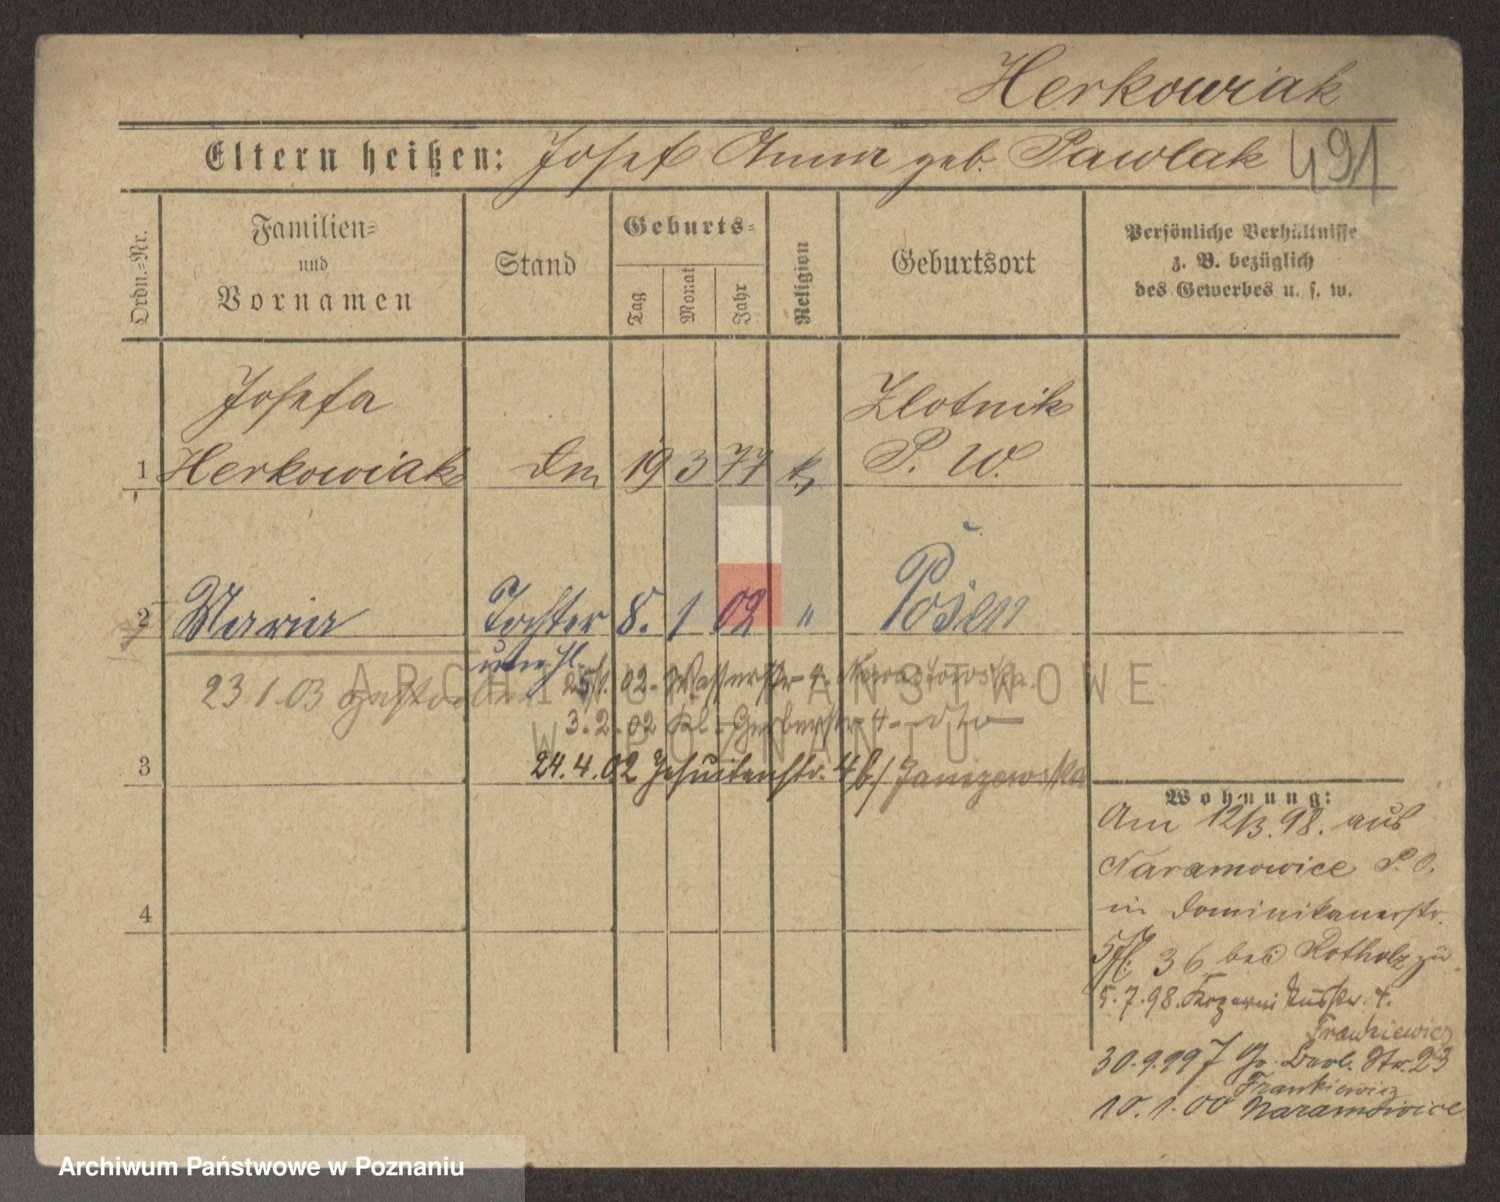 Herkowiak
Eltern heißen: Josef Anna geb. Pawlak 491
Ordn.-Nr.
Familien-
und
Vornamen
Stand
Geburts-
Tag
Monat
Jahr
Religion
Geburtsort
Persönliche Verhältnisse
z. B. bezüglich
des Gewerbes u. s. w.
Josefa
Zlotnik
1 Herkowiak 19 3 77 k. P. W.
2 Maria Tochter 8. 1 02 " Posen
unehl.
23 1.03 gestorben
25/1. 02. Wasserstr.
3. 2. 02 Kl. Gerberstr 4 dto
3
24. 4. 02 Jesuitenstr. 4 b/ Janczewska
4
ARCHIWUM PAŃSTWOWE
W POZNANIU
Wohnung:
Am 12/3. 98. aus
Naramowice P. O.
in Dominikanerstr.
36 bei Rotholz zu
5. 7. 98. 4.
Frankiewicz
30. 9. 997 Gr. Berl. Str. 23
Frankiewicz
10. 1. 00 Naramowice
Archiwum Państwowe w Poznaniu